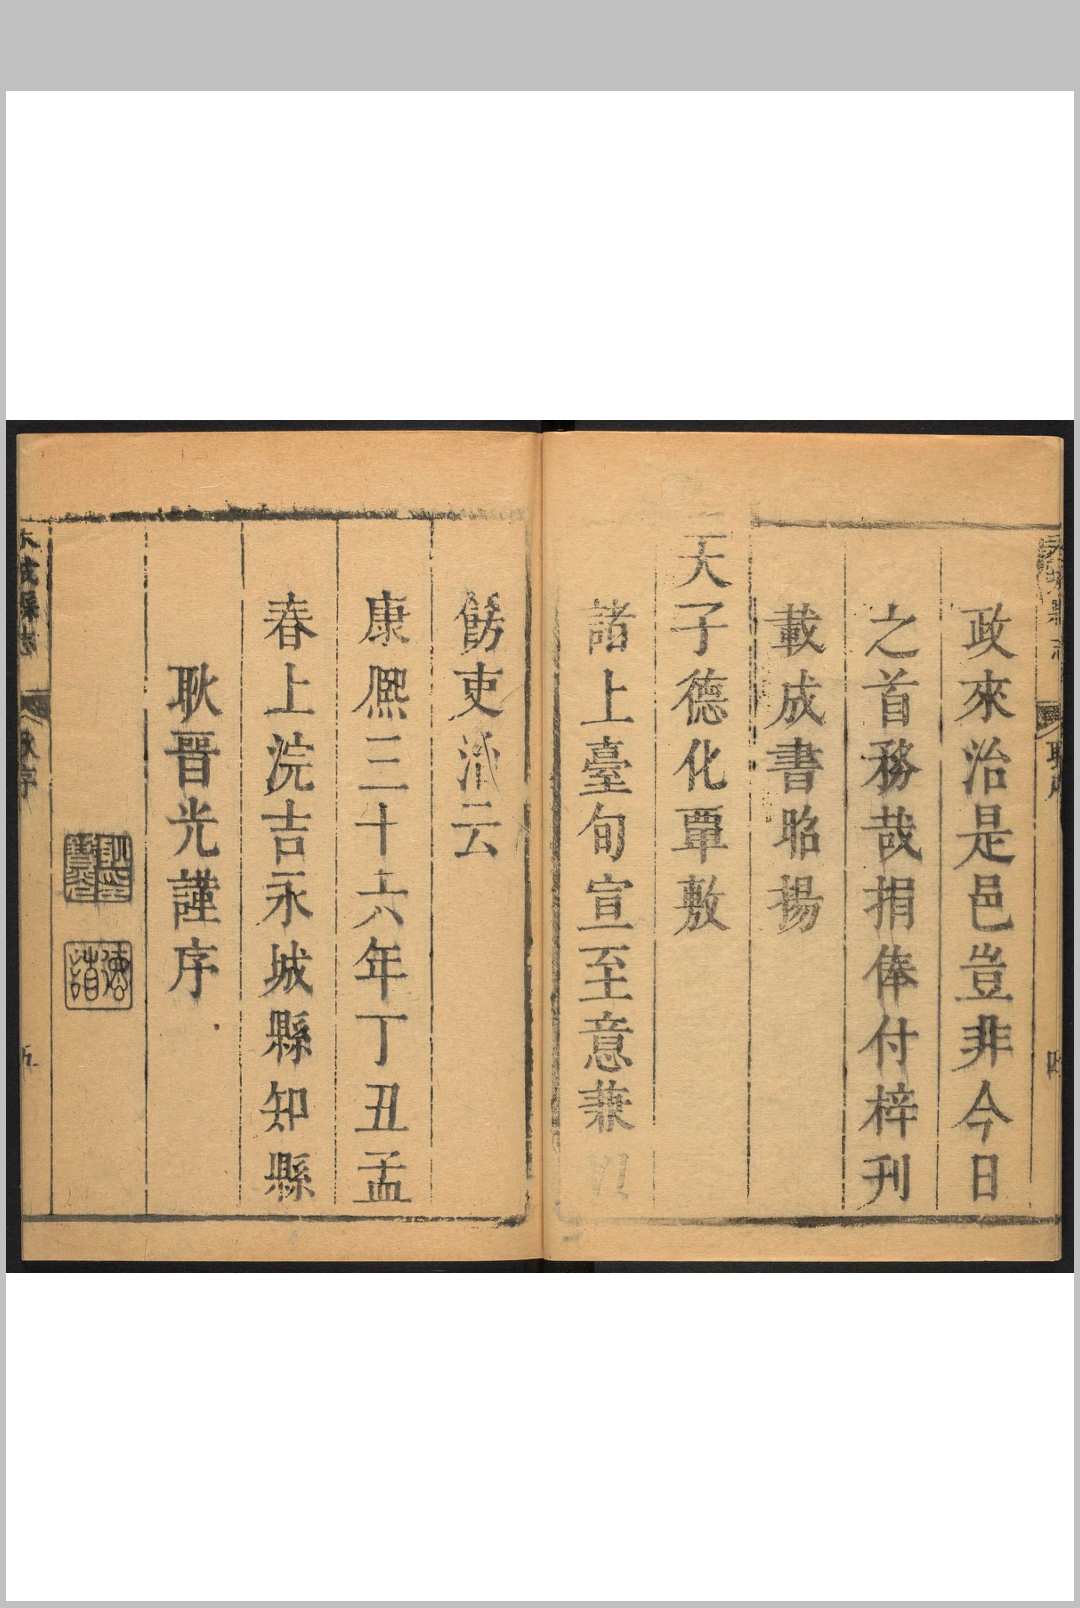 政來治是邑豈非今日
之首務哉捐俸付梓刊
載成書昭揚
天子德化覃敷
諸上臺旬宣至意兼以
飭吏治云
康熈三十六年丁丑孟
春上浣吉永城縣知縣
耿晋光謹序